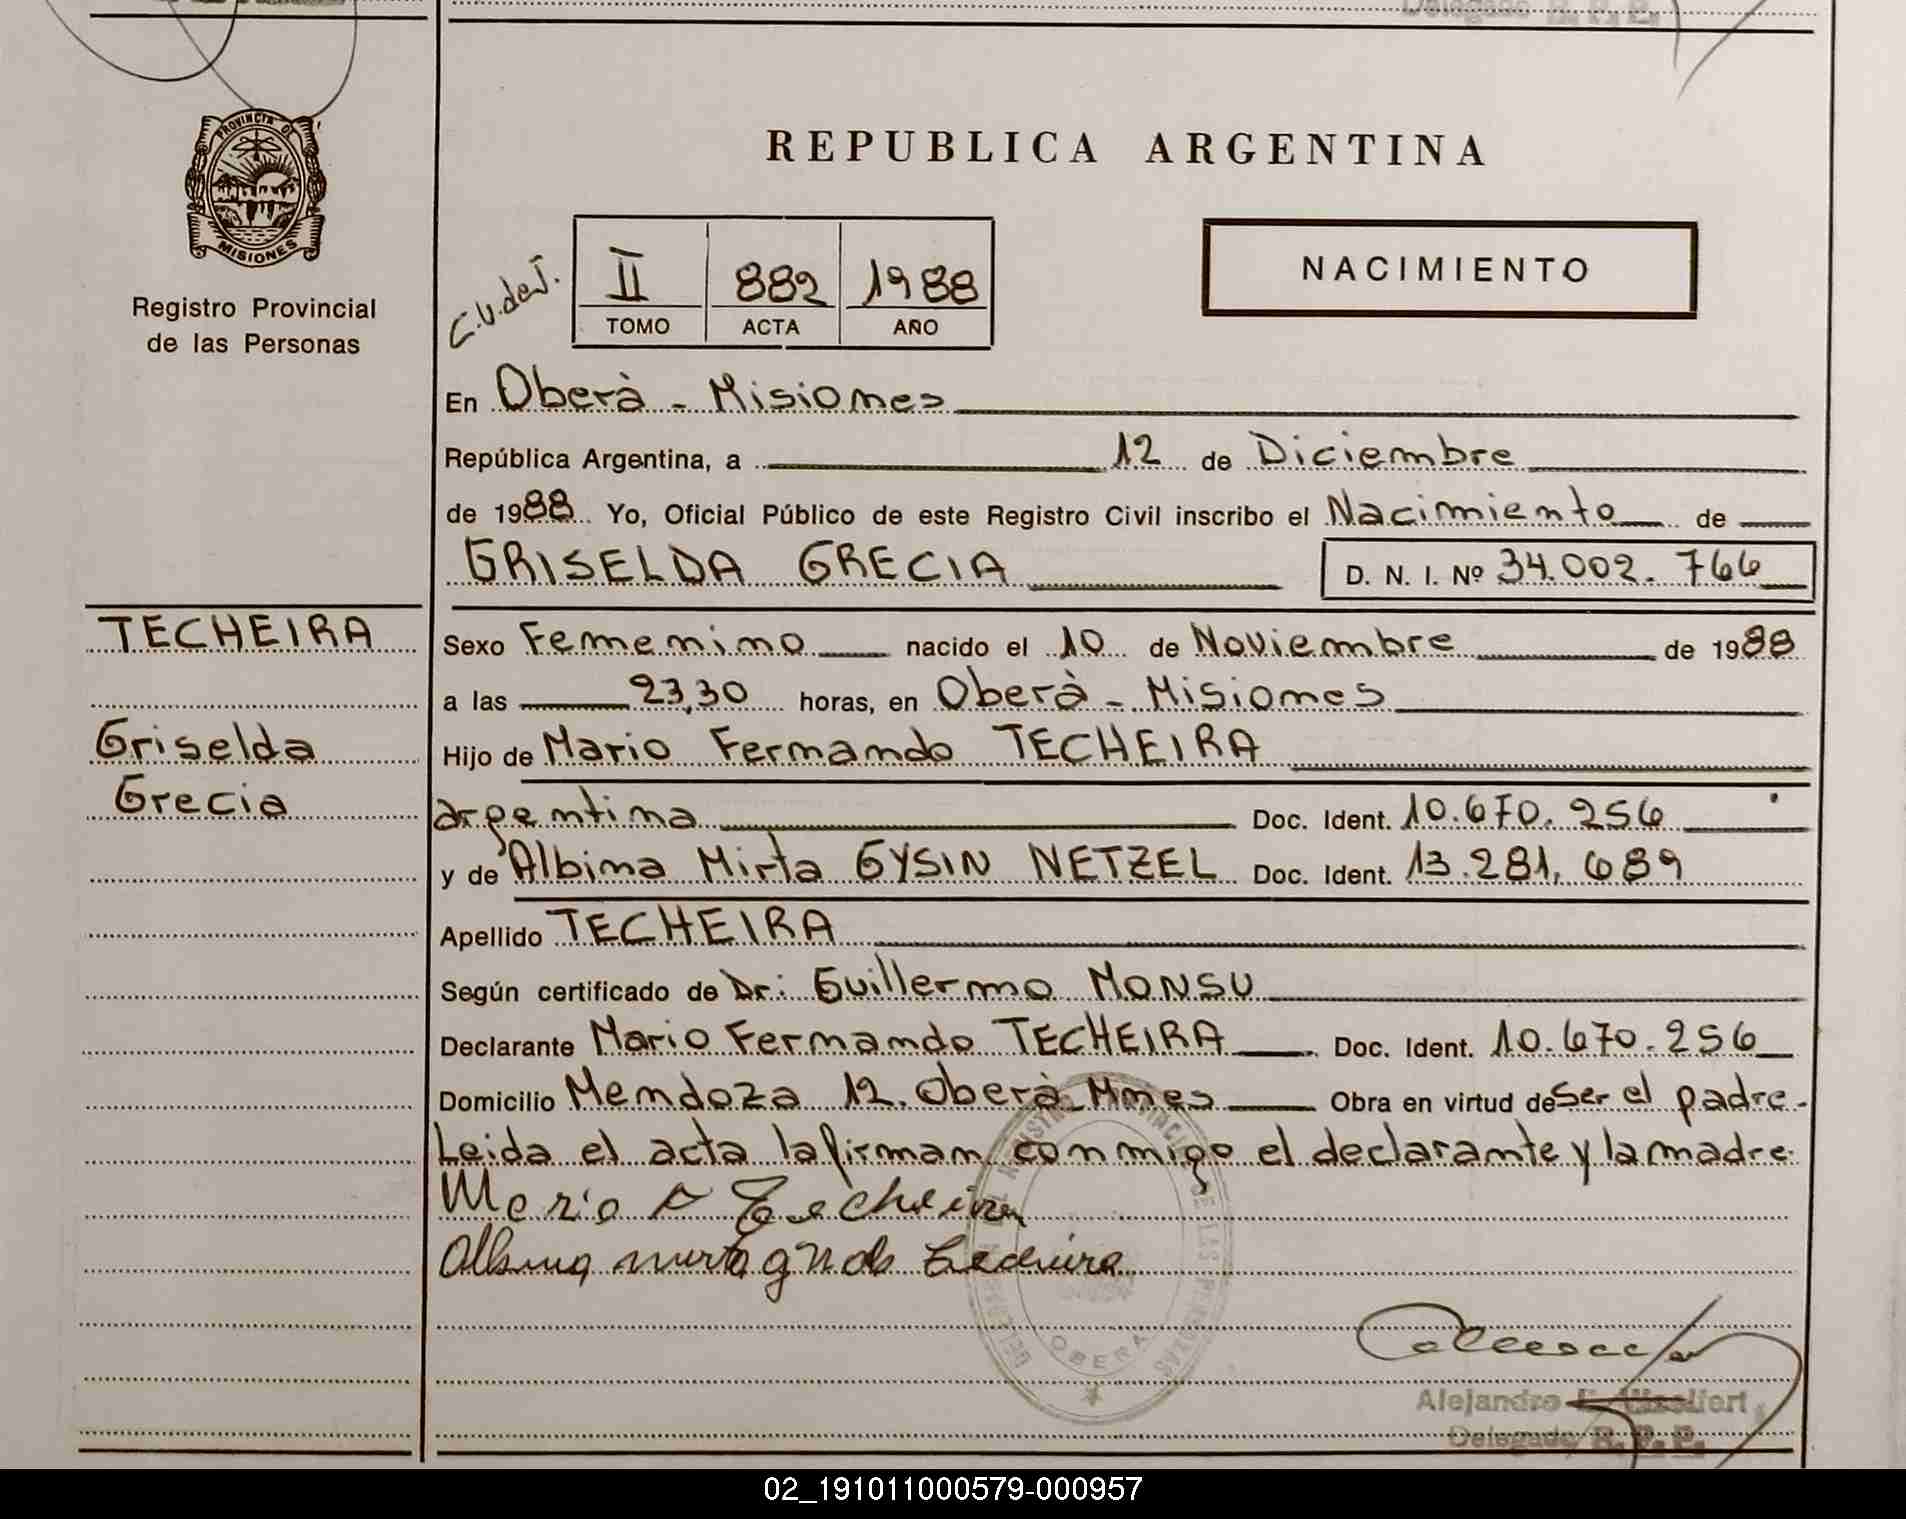 Delegado R. P. P.
PROVINCIA DE
MISIONES
Registro Provincial
de las Personas
REPUBLICA ARGENTINA
C.U.deJ.
II 882 1988
TOMO ACTA AÑO
NACIMIENTO
En Oberà - Misiones
República Argentina, a 12 de Diciembre
de 1988 Yo, Oficial Público de este Registro Civil inscribo el Nacimiento de
GRISELDA GRECIA D. N. I. Nº 34.002.766
TECHEIRA
Griselda
Grecia
Sexo Femenino nacido el 10 de Noviembre de 1988
a las 23,30 horas, en Oberà - Misiones
Hijo de Mario Fernando TECHEIRA
argentina Doc. Ident. 10.670.256
y de Albina Mirta GYSIN NETZEL Doc. Ident. 13.281,689
Apellido TECHEIRA
Según certificado de Dr: Guillermo MONSU
Declarante Mario Fernando TECHEIRA Doc. Ident. 10.670.256
Domicilio Mendoza 12. Oberà - Mnes Obra en virtud de Ser el padre.
Leida el acta la firman conmigo el declarante y la madre.
Mario F Techeira
OBERA
Alejandro
Delegado R. P. P.
02_191011000579-000957